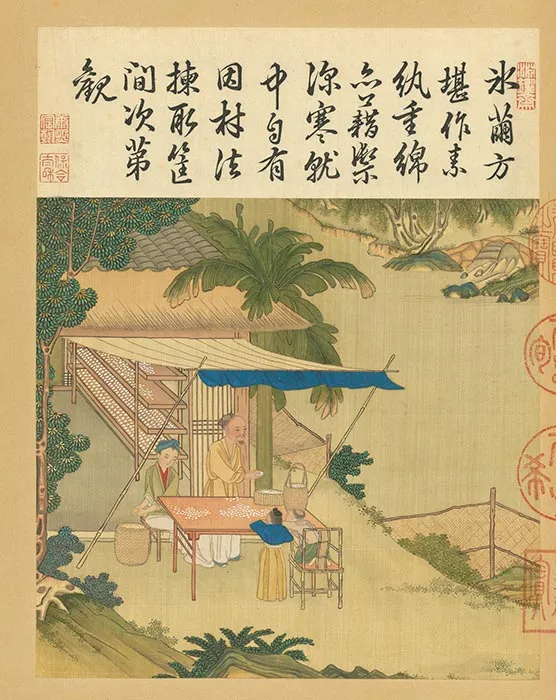 氷繭方
堪作素
紈重綿
亦藉禦
深寒就
中自有
因材法
揀取筐
間次第
觀